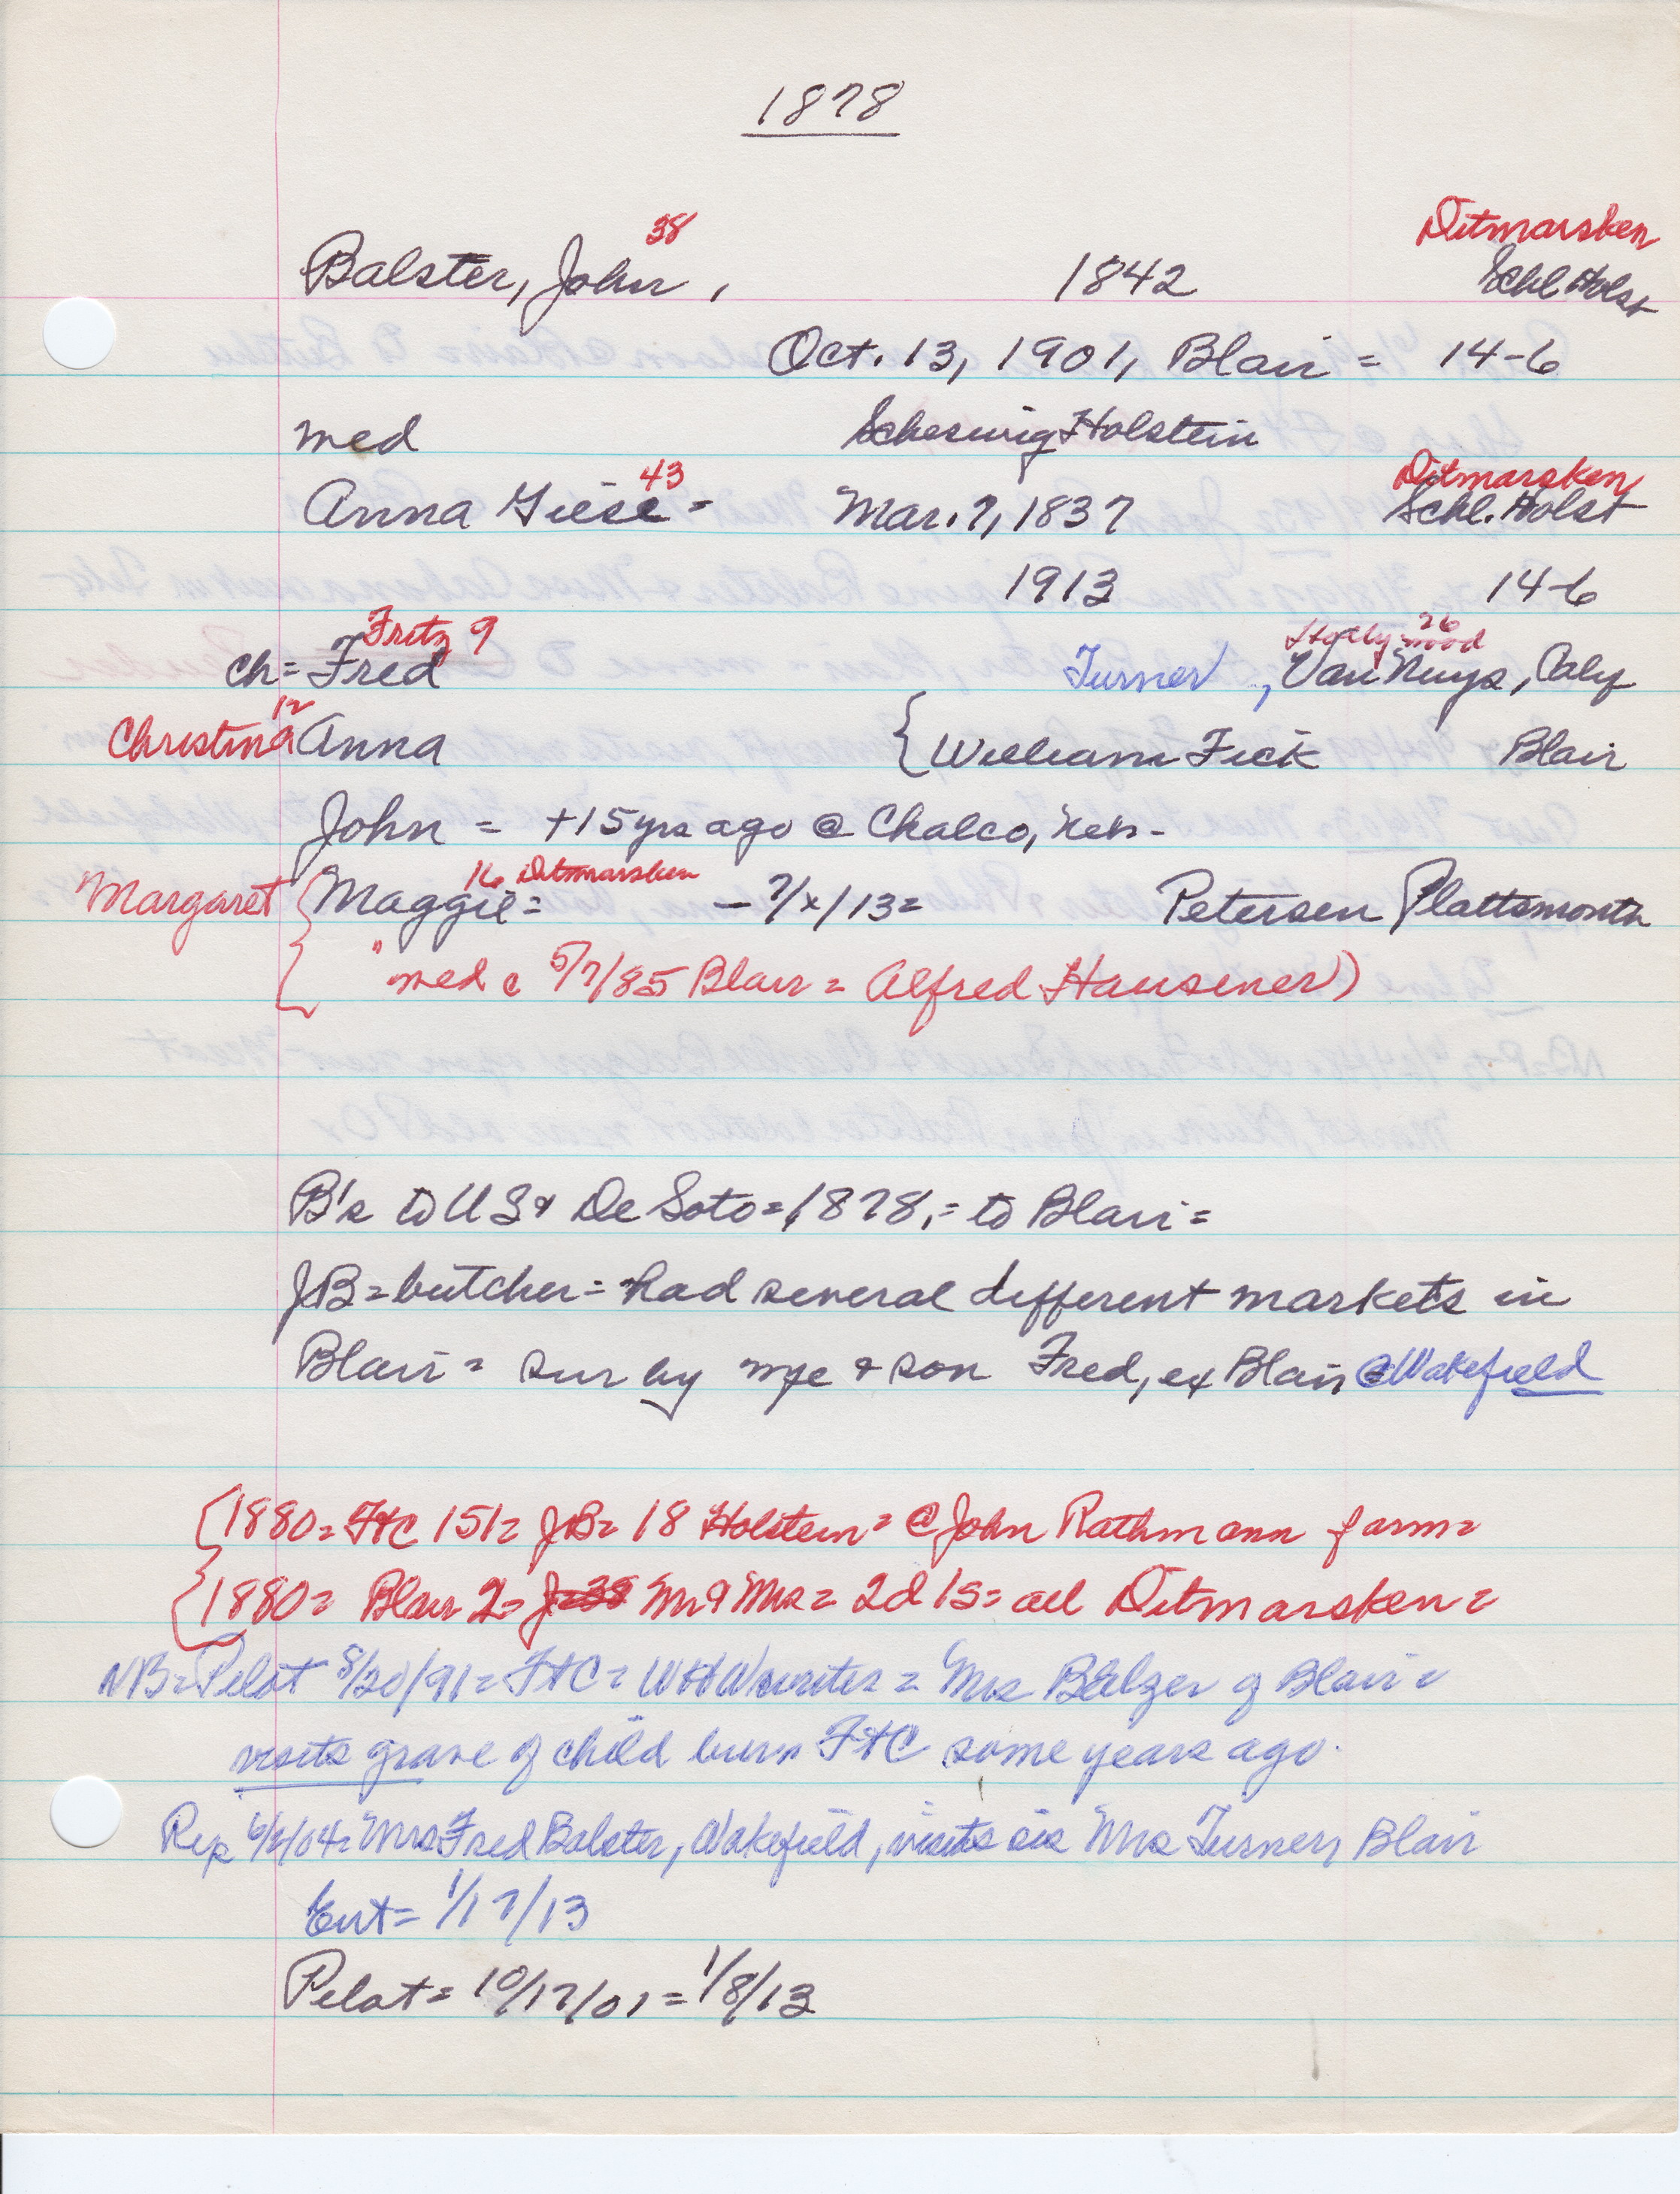 1878
38 Ditmarsken
Balster, John, 1842 Schl Holst
Oct. 13, 1901, Blair = 14-6
med Scheswig Holstein
43 Ditmarsken
Anna Giese - Mar. 7, 1837 Schl. Holst
1913 14-6
Fritz 9 Hollywood 26
ch = Fred Turner, Van Nuys, Calif
12
Christina Anna { William Fick Blair
John = +15 yrs ago @ Chalco, Neb-
16 Ditmarsken
Margaret { Maggie = - 7/x/13 = Petersen Plattsmouth
" med c 5/7/85 Blair = Alfred Hausener)
B's to US & De Soto = 1878, = to Blair =
JB = butcher = had several different markets in
Blair = sur by wife & son Fred, ex Blair @ Wakefield
{ 1880 = FtC 151 = JB = 18 Holstein = @ John Rathmann farm =
{ 1880 = Blair 2 = J=38 Mr & Mrs = 2d 1s = all Ditmarsken =
NB = Pilot 8/20/91 = FtC = WHW writes = Mrs Balzer of Blair =
visits grave of child burn FtC some years ago.
Rep 6/2/04 = Mrs Fred Balster, Wakefield, visits sis Mrs Turner, Blair
Ent = 1/17/13
Pilot = 10/17/01 = 1/8/13